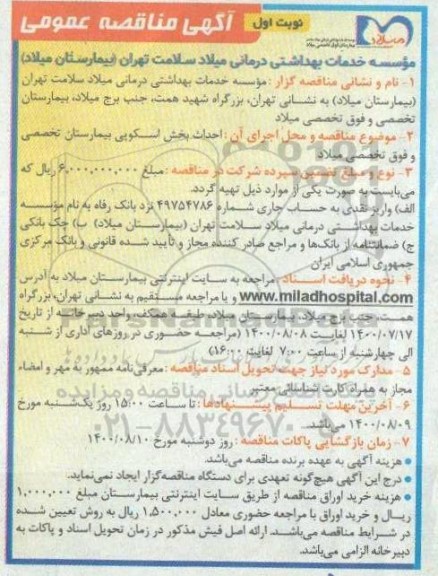 نوبت اول
آگهی مناقصه عمومی
میلاد
مؤسسه خدمات بهداشتی درمانی میلاد سلامت تهران (بیمارستان میلاد)
۱- نام و نشانی مناقصه گزار : مؤسسه خدمات بهداشتی درمانی میلاد سلامت تهران
(بیمارستان میلاد) به نشانی تهران، بزرگراه شهید همت، جنب برج میلاد، بیمارستان
تخصصی و فوق تخصصی میلاد
۲- موضوع مناقصه و محل اجرای آن : احداث بخش اسکوپی بیمارستان تخصصی
و فوق تخصصی میلاد
۳- نوع و مبلغ تضمین سپرده شرکت در مناقصه : مبلغ ۶,۰۰۰,۰۰۰,۰۰۰ ریال که
می‌بایست به صورت یکی از موارد ذیل تهیه گردد.
الف) واریز نقدی به حساب جاری شماره ۴۹۷۵۴۷۸۶ نزد بانک رفاه به نام مؤسسه
خدمات بهداشتی درمانی میلاد سلامت تهران (بیمارستان میلاد) ب) چک بانکی
ج) ضمانتنامه از بانک‌ها و مراجع صادر کننده مجاز و تأیید شده قانونی و بانک مرکزی
جمهوری اسلامی ایران
۴- نحوه دریافت اسناد : مراجعه به سایت اینترنتی بیمارستان میلاد به آدرس
www.miladhospital.com و یا مراجعه مستقیم به نشانی تهران، بزرگراه
همت، جنب برج میلاد، بیمارستان میلاد، طبقه همکف، واحد دبیرخانه از تاریخ
۱۴۰۰/۰۷/۱۷ لغایت ۱۴۰۰/۰۸/۰۸ (مراجعه حضوری در روزهای اداری از شنبه
الی چهارشنبه از ساعت ۷:۰۰ لغایت ۱۶:۰۰)
۵- مدارک مورد نیاز جهت تحویل اسناد مناقصه : معرفی‌نامه ممهور به مهر و امضاء
مجاز به همراه کارت شناسائی معتبر
۶- آخرین مهلت تسلیم پیشنهادها : تا ساعت ۱۵:۰۰ روز یک‌شنبه مورخ
۱۴۰۰/۰۸/۰۹ می‌باشد.
۷- زمان بازگشایی پاکات مناقصه : روز دوشنبه مورخ ۱۴۰۰/۰۸/۱۰
● هزینه آگهی به عهده برنده مناقصه می‌باشد.
● درج این آگهی هیچ‌گونه تعهدی برای دستگاه مناقصه‌گزار ایجاد نمی‌نماید.
● هزینه خرید اوراق مناقصه از طریق سایت اینترنتی بیمارستان مبلغ ۱,۰۰۰,۰۰۰
ریال و خرید اوراق با مراجعه حضوری معادل ۱,۵۰۰,۰۰۰ ریال به روش تعیین شده
در شرایط مناقصه می‌باشد. ارائه اصل فیش مذکور در زمان تحویل اسناد و پاکات به
دبیرخانه الزامی می‌باشد.
۰۲۱-۸۸۳۴۹۶۷۰